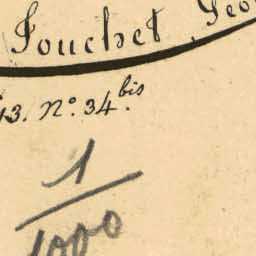 Fouchet, Geo
13. N° 34 bis.
1
1000